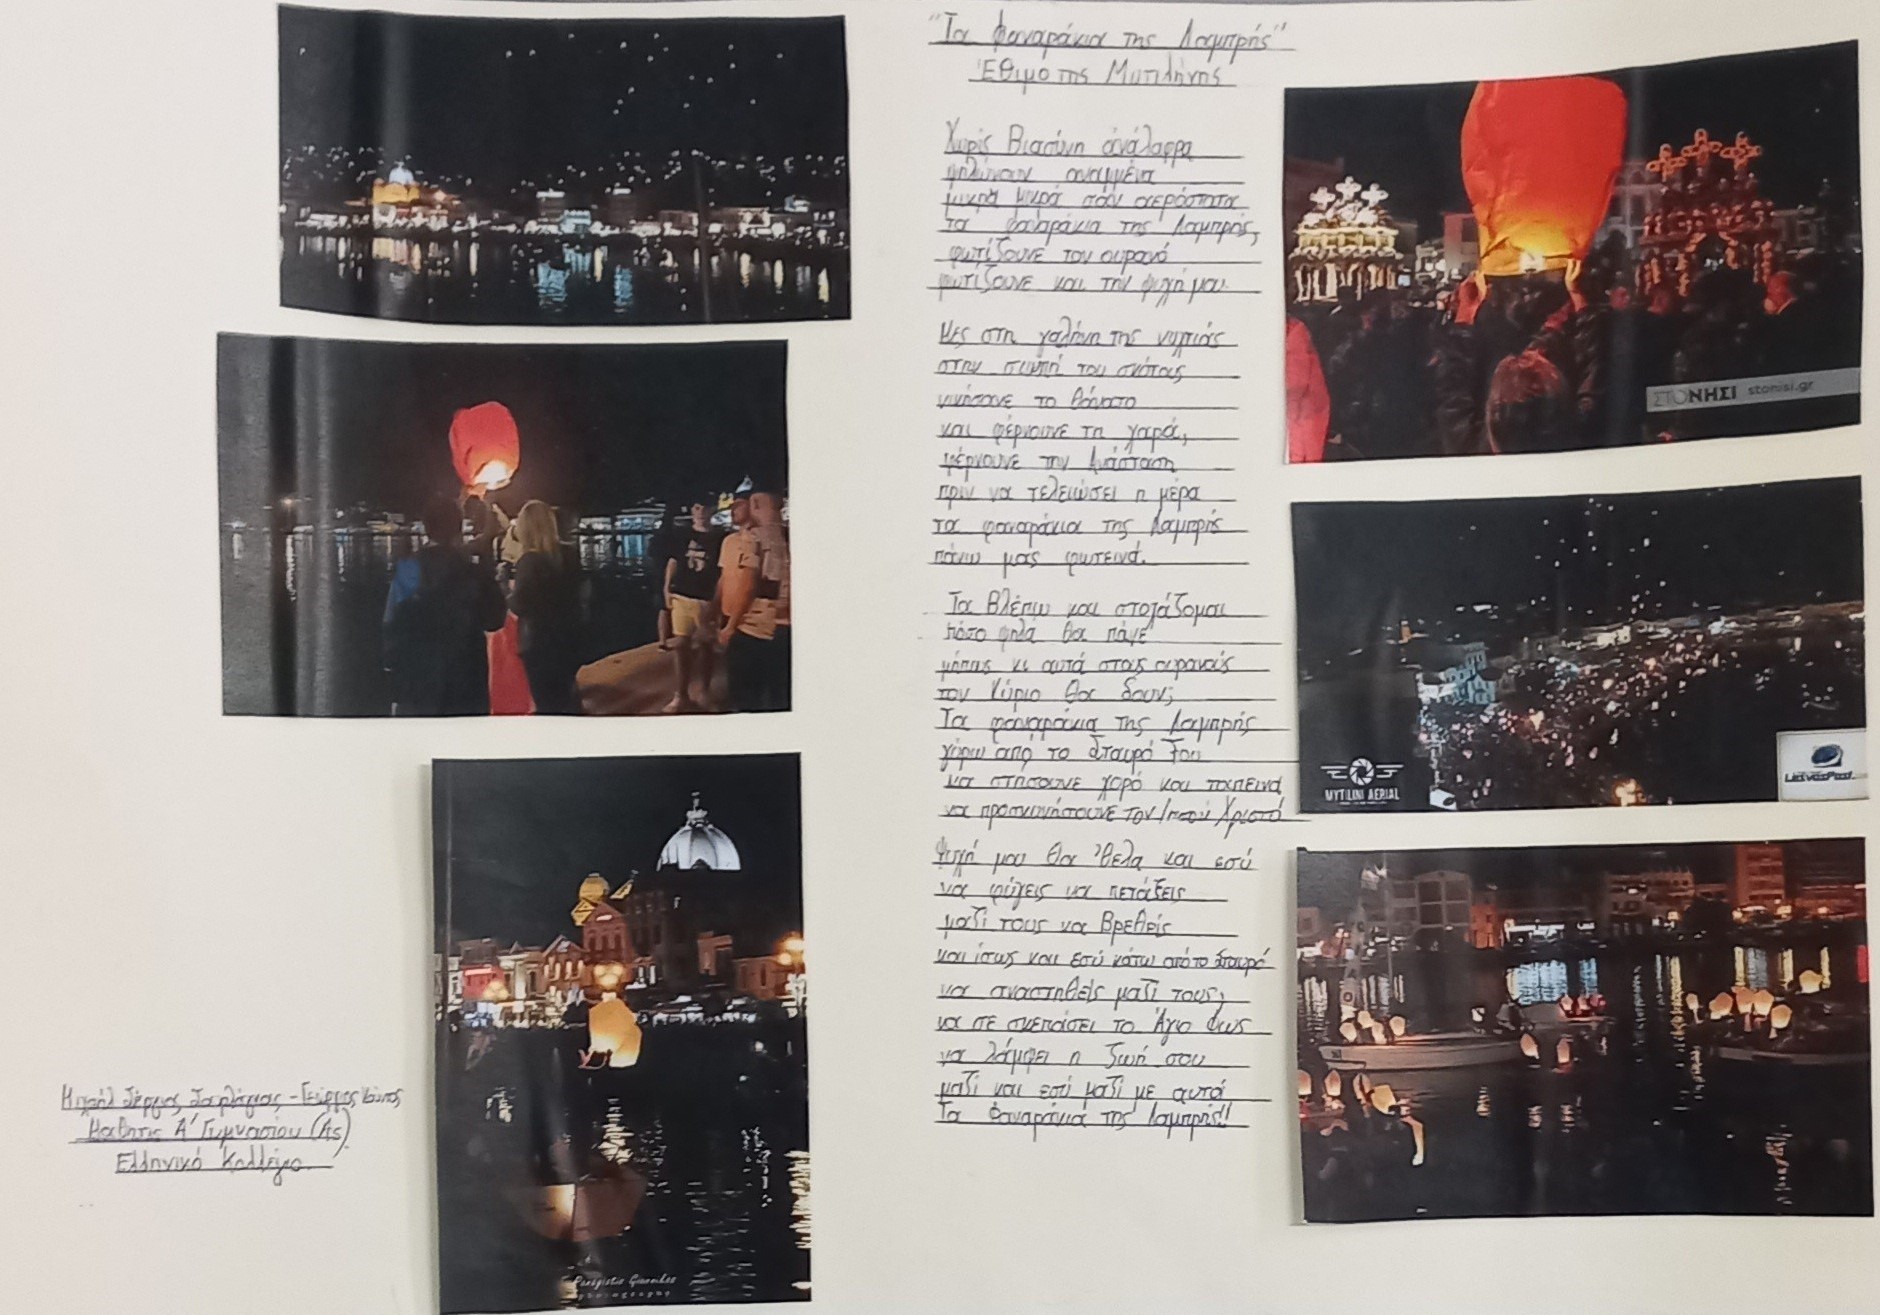 "Τα φαναράκια της Λαμπρής"
Έθιμο της Μυτιλήνης
Χωρίς βιασύνη ανάλαφρα
ψηλώνουν αναμμένα
μικρά μικρά σαν αερόστατα
τα φαναράκια της Λαμπρής,
φωτίζουνε τον ουρανό
φωτίζουνε και την ψυχή μου.
Μες στη γαλήνη της νυχτιάς
στην σιωπή του σκότους
νικήσανε το θάνατο
και φέρνουνε τη χαρά,
φέρνουνε την Ανάσταση
πριν να τελειώσει η μέρα
τα φαναράκια της Λαμπρής
πάνω μας φωτεινά.
Τα βλέπω και στοχάζομαι
πόσο ψηλά θα πάνε
μήπως κι αυτά στους ουρανούς
τον Κύριο θα δουν;
Τα φαναράκια της Λαμπρής
γύρω από το Σταυρό Του
να στήσουνε χορό και ταπεινά
να προσκυνήσουνε τον Ιησού Χριστό
Ψυχή μου θα 'θελα και εσύ
να φύγεις να πετάξεις
μαζί τους να βρεθείς
και ίσως και εσύ κάτω από το Σταυρό
να αναστηθείς μαζί τους,
να σε σκεπάσει το Άγιο Φως
να λάμψει η ζωή σου
μαζί και εσύ μαζί με αυτά
Τα Φαναράκια της Λαμπρής!!
ΣΤΟΝΗΣΙ stonisi.gr
MYTILINI AERIAL
LesvosPost
Μιχαήλ Σέργιος - Γεώργιος
Μαθητές Α' Γυμνασίου (Α5)
Ελληνικό Κολλέγιο
photography